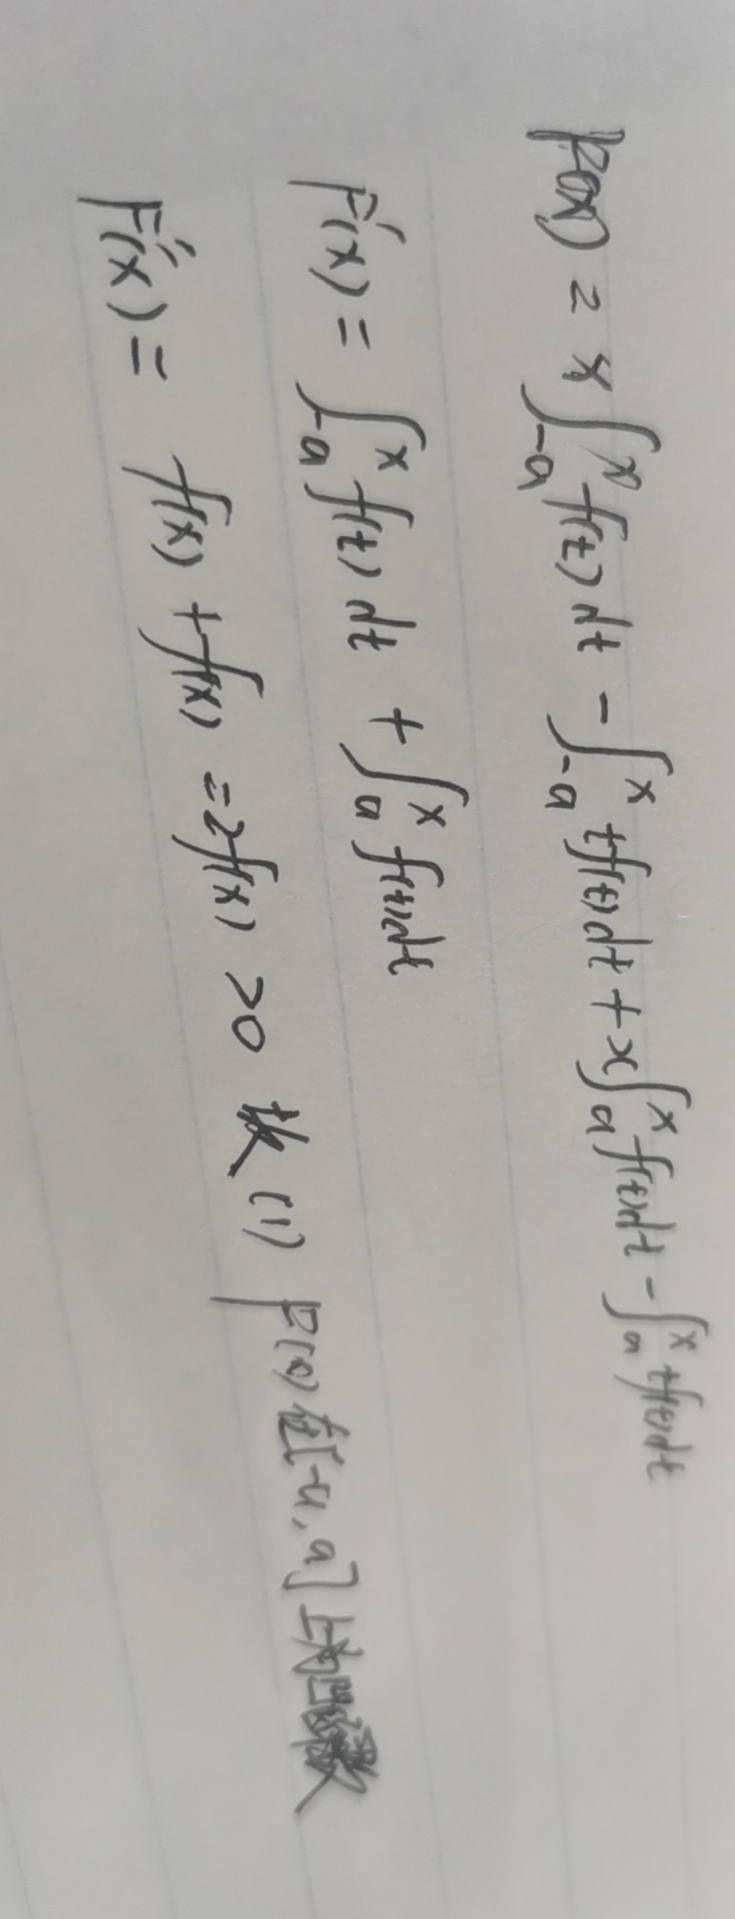 F(x) = x∫_{-a}^{x} f(t)dt - ∫_{-a}^{x} tf(t)dt + x∫_{a}^{x} f(t)dt - ∫_{a}^{x} tf(t)dt
F'(x) = ∫_{-a}^{x} f(t)dt + ∫_{a}^{x} f(t)dt
F''(x) = f(x) + f(x) = 2f(x) >0 故 (1) F(x)在[-a,a]上为凹函数